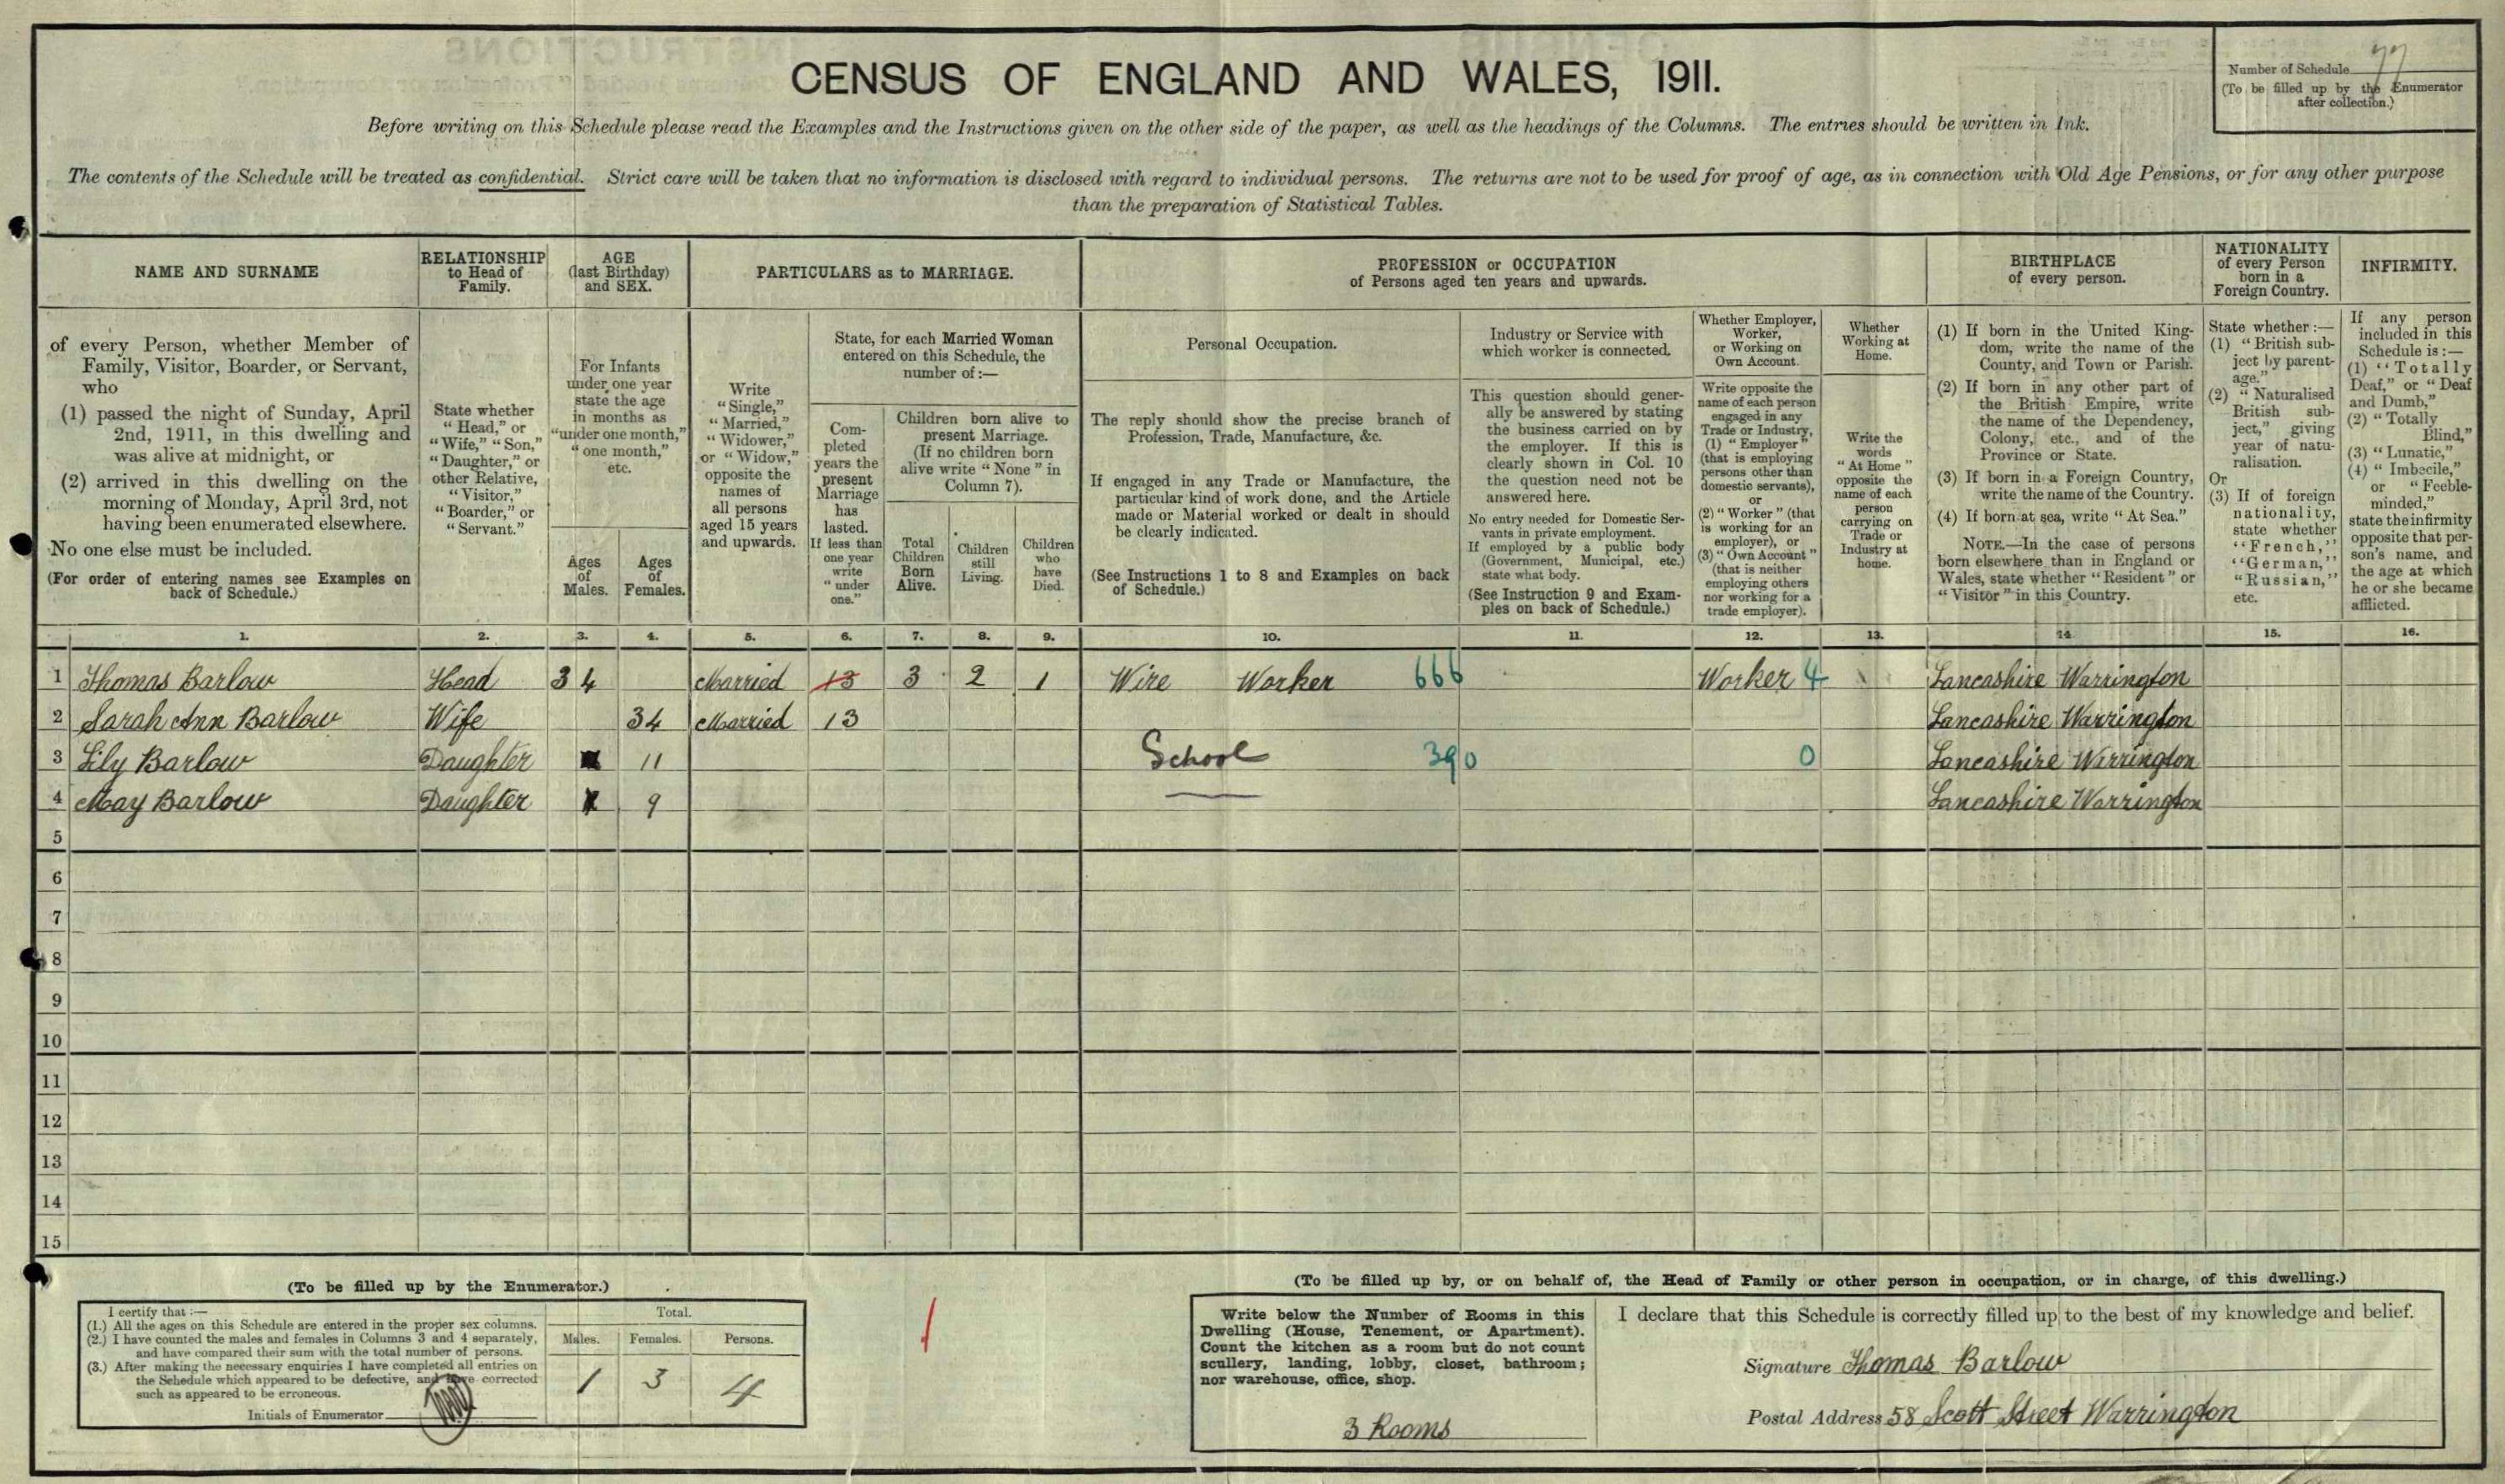 CENSUS OF ENGLAND AND WALES, 1911.
Number of Schedule 77
(To be filled up by the Enumerator
after collection.)
Before writing on this Schedule please read the Examples and the Instructions given on the other side of the paper, as well as the headings of the Columns. The entries should be written in Ink.
The contents of the Schedule will be treated as confidential. Strict care will be taken that no information is disclosed with regard to individual persons. The returns are not to be used for proof of age, as in connection with Old Age Pensions, or for any other purpose
than the preparation of Statistical Tables.
NAME AND SURNAME
of every Person, whether Member of
Family, Visitor, Boarder, or Servant,
who
(1) passed the night of Sunday, April
2nd, 1911, in this dwelling and
was alive at midnight, or
(2) arrived in this dwelling on the
morning of Monday, April 3rd, not
having been enumerated elsewhere.
No one else must be included.
(For order of entering names see Examples on
back of Schedule.)
RELATIONSHIP
to Head of
Family.
State whether
"Head," or
"Wife," "Son,"
"Daughter," or
other Relative,
"Visitor,"
"Boarder," or
"Servant."
AGE
(last Birthday)
and SEX.
For Infants
under one year
state the age
in months as
"under one month,"
"one month,"
etc.
Ages
of
Males.
Ages
of
Females.
PARTICULARS as to MARRIAGE.
Write
"Single,"
"Married,"
"Widower,"
or "Widow,"
opposite the
names of
all persons
aged 15 years
and upwards.
State, for each Married Woman
entered on this Schedule, the
number of:—
Com-
pleted
years the
present
Marriage
has
lasted.
If less than
one year
write
"under
one."
Children born alive to
present Marriage.
(If no children born
alive write "None" in
Column 7).
Total
Children
Born
Alive.
Children
still
Living.
Children
who
have
Died.
PROFESSION or OCCUPATION
of Persons aged ten years and upwards.
Personal Occupation.
The reply should show the precise branch of
Profession, Trade, Manufacture, &c.
If engaged in any Trade or Manufacture, the
particular kind of work done, and the Article
made or Material worked or dealt in should
be clearly indicated.
(See Instructions 1 to 8 and Examples on back
of Schedule.)
Industry or Service with
which worker is connected.
This question should gener-
ally be answered by stating
the business carried on by
the employer. If this is
clearly shown in Col. 10
the question need not be
answered here.
No entry needed for Domestic Ser-
vants in private employment.
If employed by a public body
(Government, Municipal, etc.)
state what body.
(See Instruction 9 and Exam-
ples on back of Schedule.)
Whether Employer,
Worker,
or Working on
Own Account.
Write opposite the
name of each person
engaged in any
Trade or Industry,
(1) "Employer"
(that is employing
persons other than
domestic servants),
or
(2) "Worker" (that
is working for an
employer), or
(3) "Own Account"
(that is neither
employing others
nor working for a
trade employer).
Whether
Working at
Home.
Write the
words
"At Home"
opposite the
name of each
person
carrying on
Trade or
Industry at
home.
BIRTHPLACE
of every person.
(1) If born in the United King-
dom, write the name of the
County, and Town or Parish.
(2) If born in any other part of
the British Empire, write
the name of the Dependency,
Colony, etc., and of the
Province or State.
(3) If born in a Foreign Country,
write the name of the Country.
(4) If born at sea, write "At Sea."
NOTE.—In the case of persons
born elsewhere than in England or
Wales, state whether "Resident" or
"Visitor" in this Country.
NATIONALITY
of every Person
born in a
Foreign Country.
State whether:—
(1) "British sub-
ject by parent-
age."
(2) "Naturalised
British sub-
ject," giving
year of natu-
ralisation.
Or
(3) If of foreign
nationality,
state whether
"French,"
"German,"
"Russian,"
etc.
INFIRMITY.
If any person
included in this
Schedule is:—
(1) "Totally
Deaf," or "Deaf
and Dumb,"
(2) "Totally
Blind,"
(3) "Lunatic,"
(4) "Imbecile,"
or "Feeble-
minded,"
state the infirmity
opposite that per-
son's name, and
the age at which
he or she became
afflicted.
1. 2. 3. 4. 5. 6. 7. 8. 9. 10. 11. 12. 13. 14. 15. 16.
1 Thomas Barlow Head 34 Married 13 3 2 1 Wire Worker 666 Worker 4 Lancashire Warrington
2 Sarah Ann Barlow Wife 34 Married 13 Lancashire Warrington
3 Lily Barlow Daughter 11 School 390 0 Lancashire Warrington
4 May Barlow Daughter 9 Lancashire Warrington
5
6
7
8
9
10
11
12
13
14
15
(To be filled up by the Enumerator.)
I certify that:—
(1.) All the ages on this Schedule are entered in the proper sex columns.
(2.) I have counted the males and females in Columns 3 and 4 separately,
and have compared their sum with the total number of persons.
(3.) After making the necessary enquiries I have completed all entries on
the Schedule which appeared to be defective, and have corrected
such as appeared to be erroneous.
Initials of Enumerator
Total.
Males. Females. Persons.
1 3 4
(To be filled up by, or on behalf of, the Head of Family or other person in occupation, or in charge, of this dwelling.)
Write below the Number of Rooms in this
Dwelling (House, Tenement, or Apartment).
Count the kitchen as a room but do not count
scullery, landing, lobby, closet, bathroom;
nor warehouse, office, shop.
3 Rooms
I declare that this Schedule is correctly filled up to the best of my knowledge and belief.
Signature Thomas Barlow
Postal Address 58 Scott Street Warrington